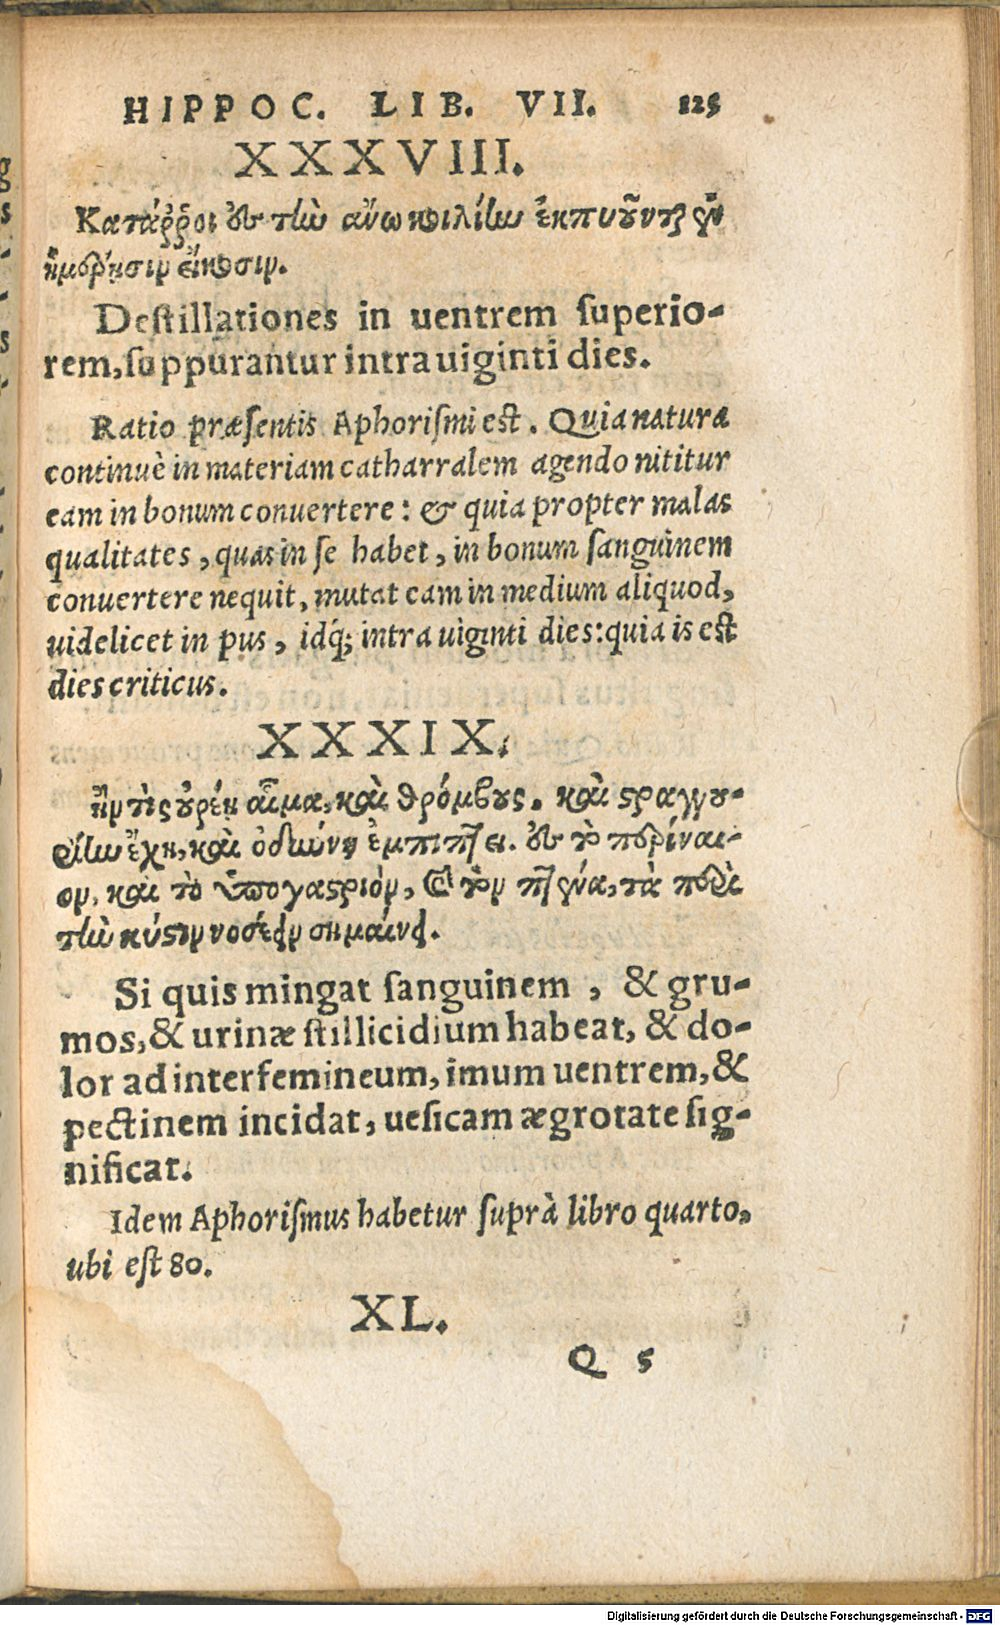 HIPPOC. LIB. VII. 125
XXXVIII.
Κατάῤῥοι ἐς τὴν ἄνω κοιλίην ἐκπυοῦνται ἐν
ἡμέρῃσιν εἴκοσιν.
Destillationes in uentrem superio-
rem, suppurantur intra uiginti dies.
Ratio præsentis Aphorismi est. Quia natura
continuè in materiam catharralem agendo nititur
eam in bonum conuertere: & quia propter malas
qualitates, quas in se habet, in bonum sanguinem
conuertere nequit, mutat eam in medium aliquod,
uidelicet in pus, idq́; intra uiginti dies: quia is est
dies criticus.
XXXIX.
ἤν τὶς οὐρέῃ αἷμα, καὶ θρόμβους. καὶ στραγγου-
ρίην ἔχῃ, καὶ ὀδύνη ἐμπίπτει. ἐς τὸ περίναι-
ον, καὶ τὸ ὑπογάστριόν, καὶ τὸν κτένα, τὰ περὶ
τὴν κύστιν νοσέειν σημαίνει.
Si quis mingat sanguinem, & gru-
mos, & urinæ stillicidium habeat, & do-
lor ad interfemineum, imum uentrem, &
pectinem incidat, uesicam ægrotate sig-
nificat.
Idem Aphorismus habetur suprà libro quarto,
ubi est 80.
XL.
Q 5
Digitalisierung gefördert durch die Deutsche Forschungsgemeinschaft - DFG